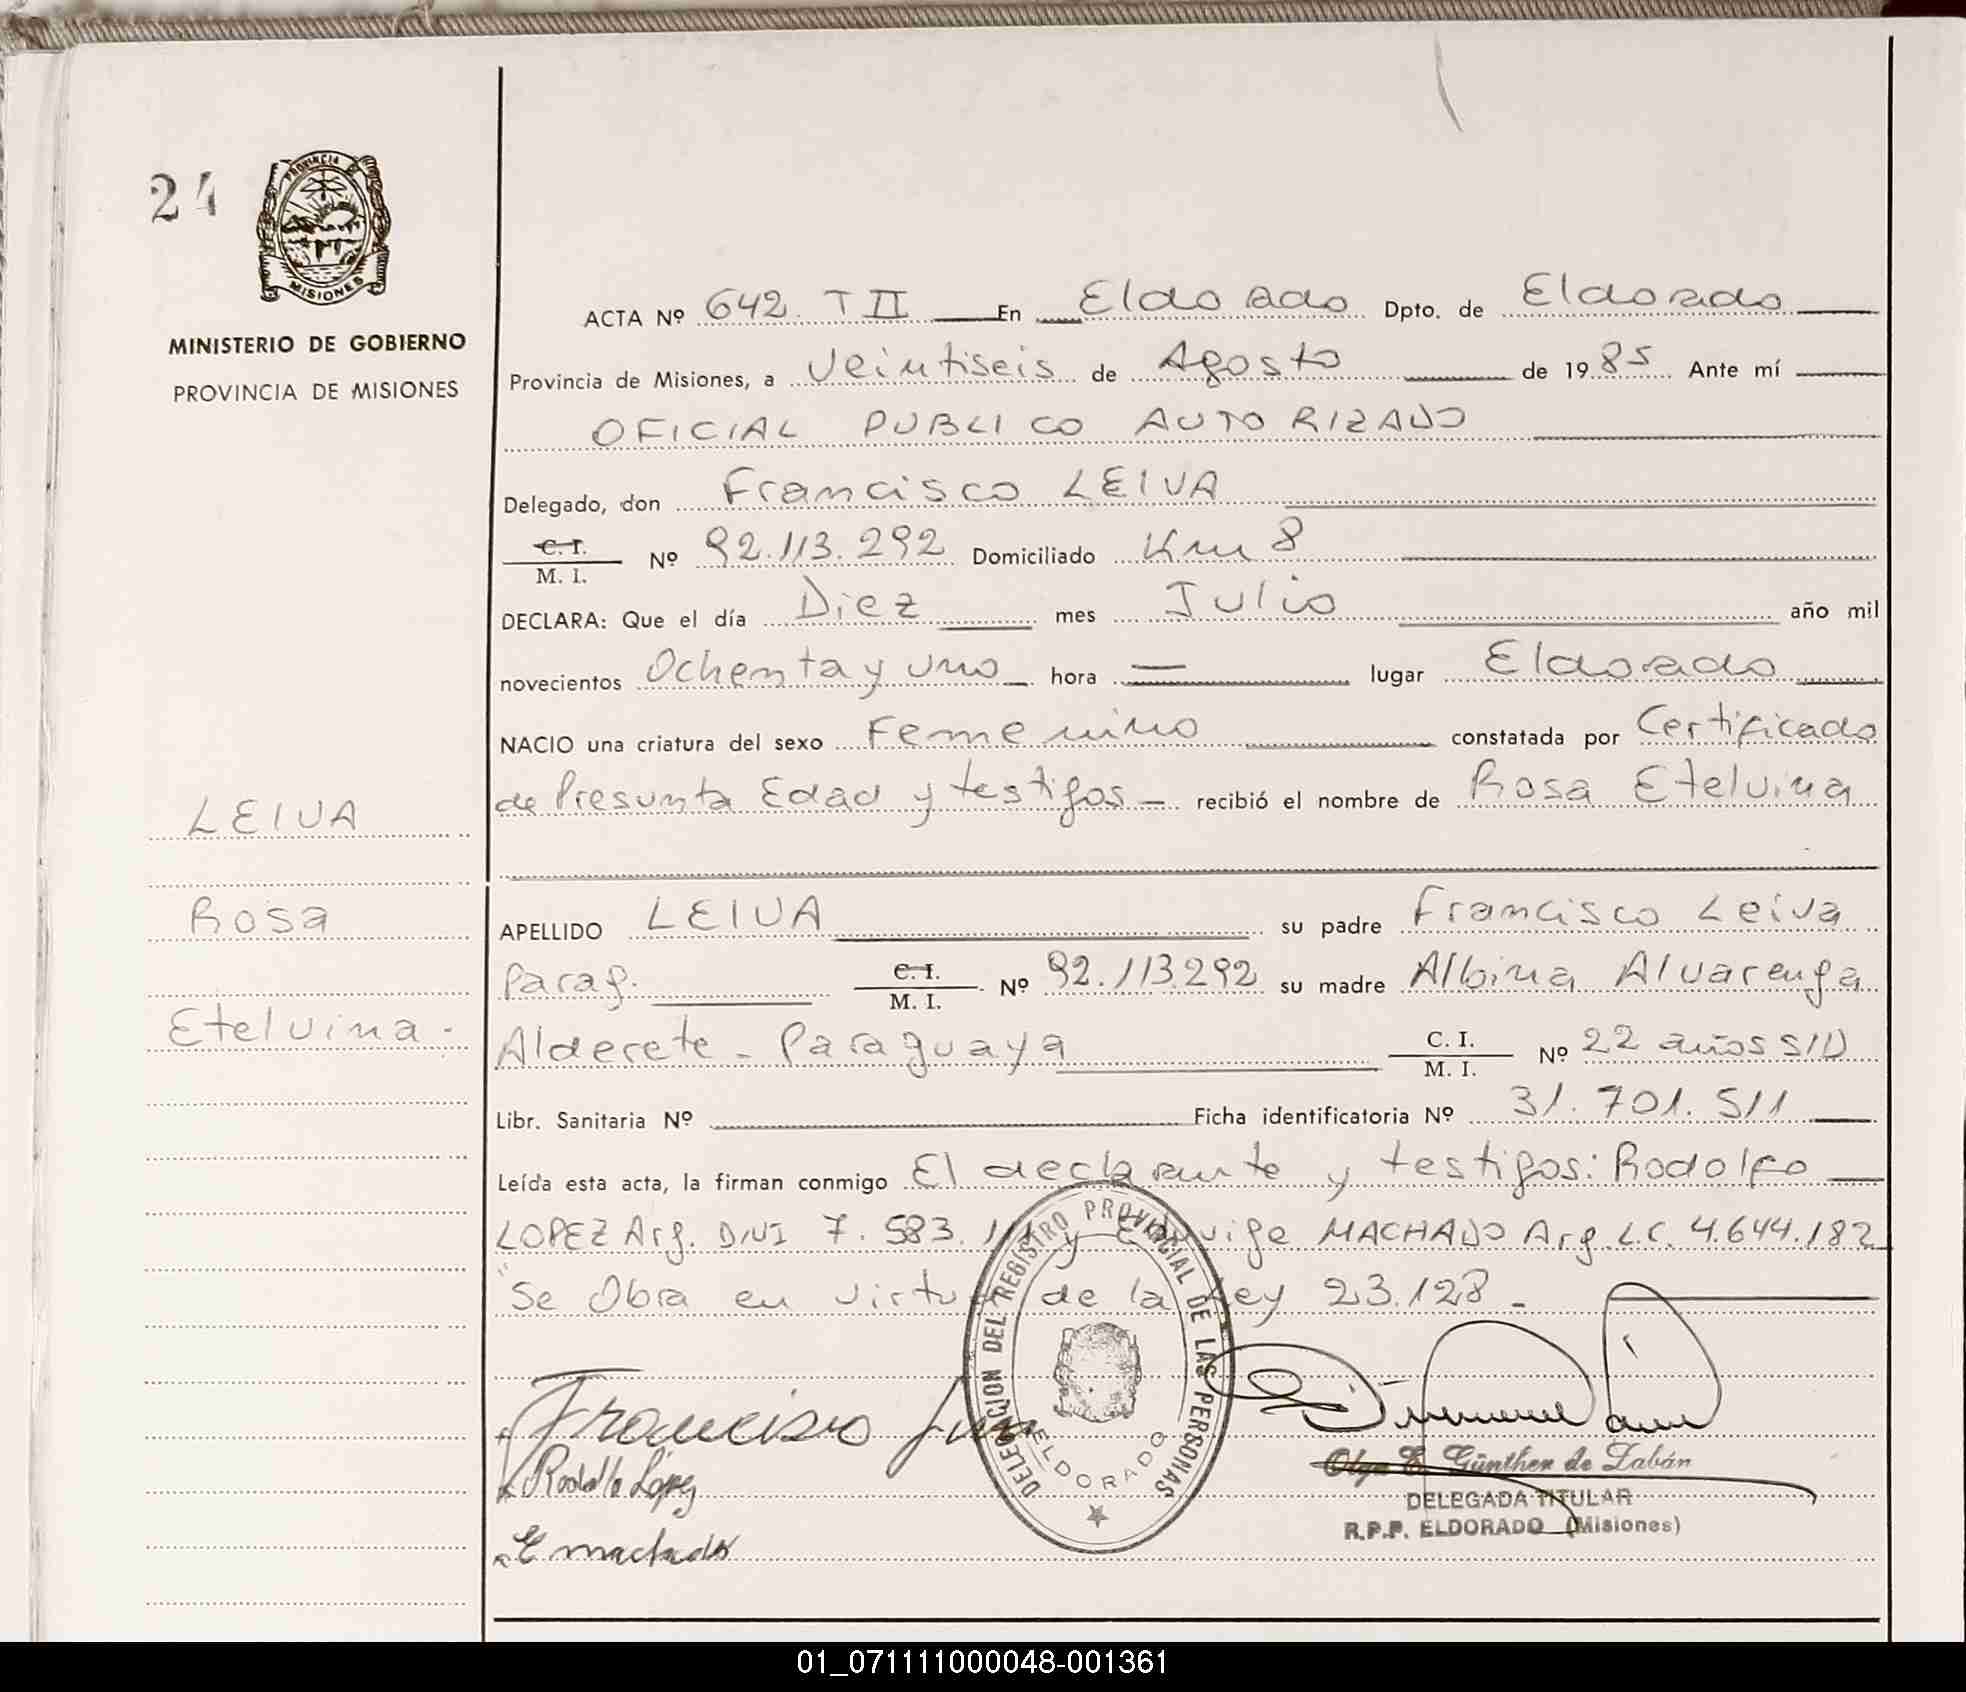 24
PROVINCIA DE
MISIONES
MINISTERIO DE GOBIERNO
PROVINCIA DE MISIONES
ACTA Nº 642 T II En Eldorado Dpto. de Eldorado
Provincia de Misiones, a Veintiseis de Agosto de 1985 Ante mí
OFICIAL PUBLICO AUTORIZADO
Delegado, don Francisco LEIVA
C. I. M. I. Nº 92.113.292 Domiciliado Km 8
DECLARA: Que el día Diez mes Julio año mil
novecientos Ochenta y uno hora — lugar Eldorado
NACIO una criatura del sexo Femenino constatada por Certificado
de Presunta Edad y testigos – recibió el nombre de Rosa Etelvina
LEIVA
Rosa
Etelvina -
APELLIDO LEIVA su padre Francisco Leiva
Parag. C. I. M. I. Nº 92.113.292 su madre Albina Alvarenga
Alderete - Paraguaya C. I. M. I. Nº 22 años S/D
Libr. Sanitaria Nº Ficha identificatoria Nº 31.701.511
Leída esta acta, la firman conmigo El declarante y testigos: Rodolfo
LOPEZ Arg. DNI 7.583. y MACHADO Arg. L.C. 4.644.182
"Se Obra en virtud de la Ley 23.128 -
DELEGACION DEL REGISTRO PROVINCIAL DE LAS PERSONAS
ELDORADO
Francisco
Rodolfo López
E machado
Olga E. Günther de Zabán
DELEGADA TITULAR
R.P.P. ELDORADO (Misiones)
01_071111000048-001361